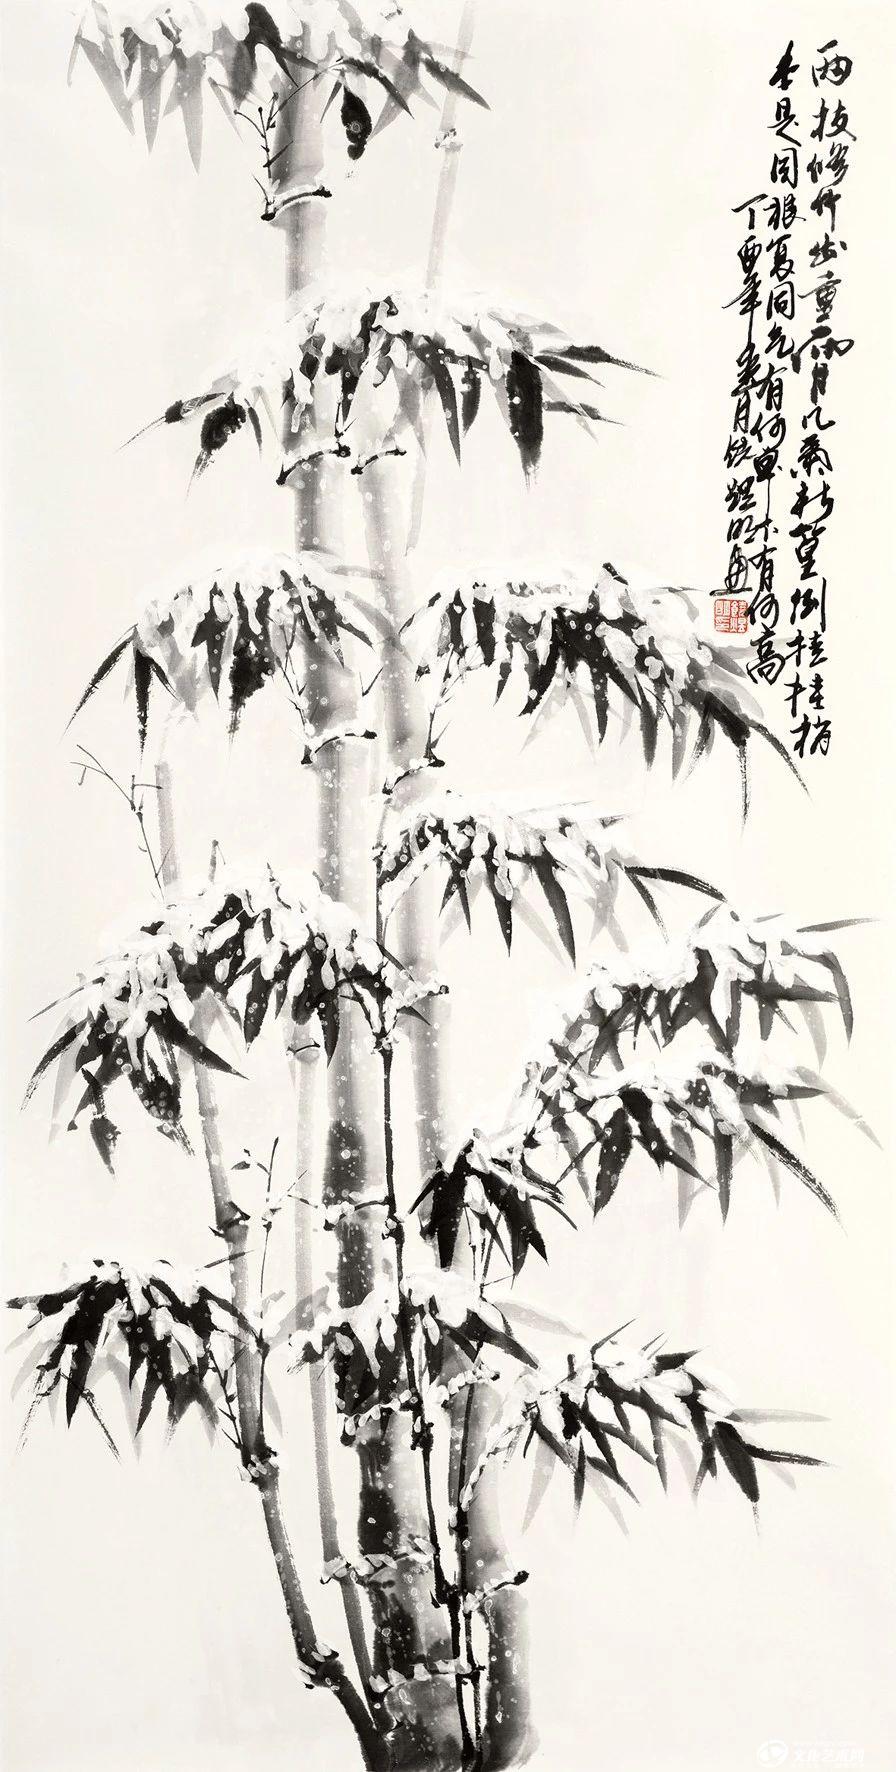 两枝修竹出重霄几叶新篁倒挂挂梢
本是同根复同气有何卑下有何高
丁酉年春月饶明画
文化艺术网